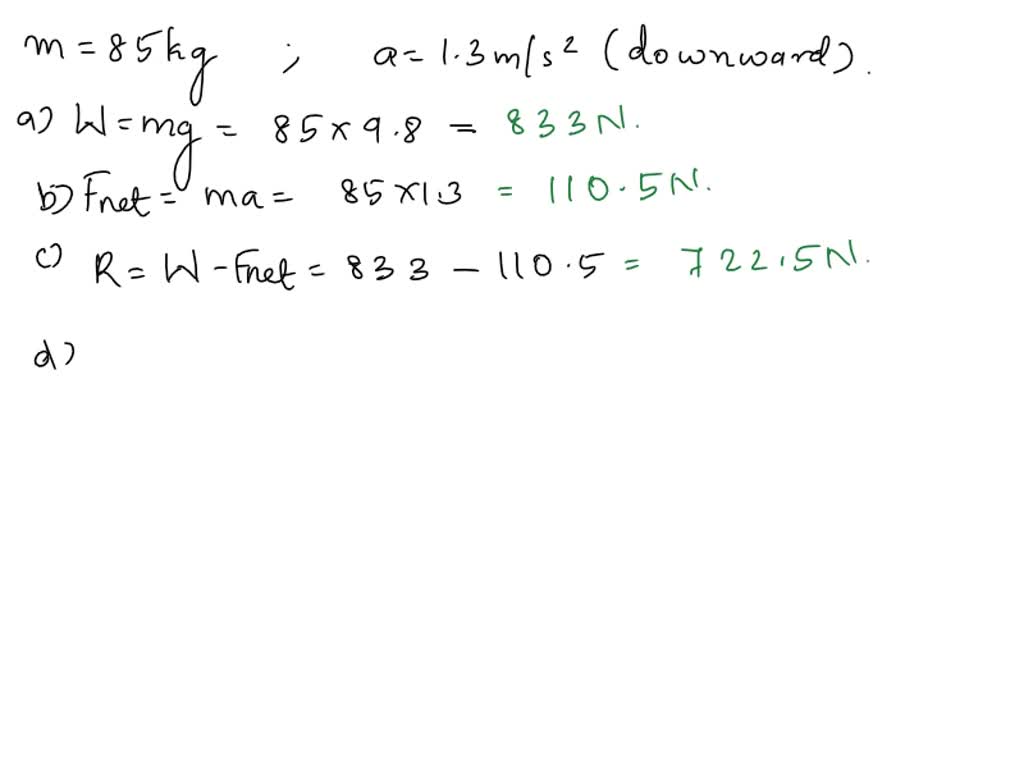 m = 85kg ; a = 1.3 m/s² (downward).
a) W = mg = 85 × 9.8 = 833 N.
b) Fnet = ma = 85 × 1.3 = 110.5 N.
c) R = W - Fnet = 833 - 110.5 = 722.5 N.
d)